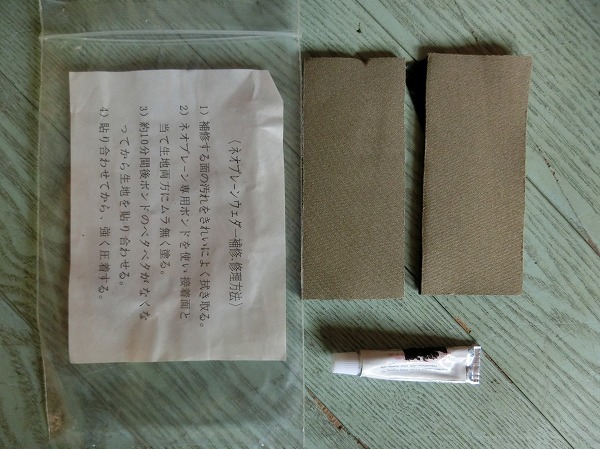 〈ネオプレーンウェダー補修､修理方法〉
1）補修する面の汚れをきれいによく拭き取る。
2）ネオプレーン専用ボンドを使い接着面と
当て生地両方にムラ無く塗る。
3）約10分間後ボンドのベタベタがなくな
ってから生地を貼り合わせる。
4）貼り合わせてから、強く圧着する。